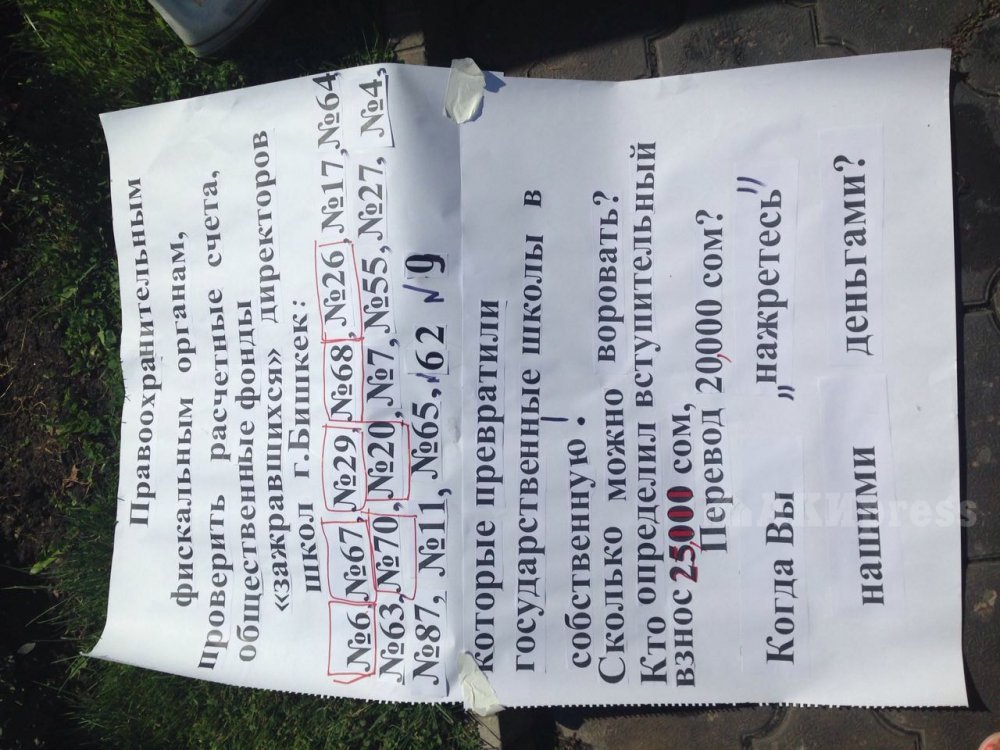 Правоохранительным
фискальным органам,
проверить расчетные счета,
общественные фонды
«зажравшихся» директоров
школ г.Бишкек:
№6, №67, №29, №68, №26, №17, №64
№63, №70, №20, №7, №55, №27, №4,
№87, №11, №65, 62 № 9
которые превратили
государственные школы в
собственную!
Сколько можно воровать?
Кто определил вступительный
взнос 25,000 сом,
Перевод 20,000 сом?
Когда Вы "нажретесь"
нашими деньгами?
АКИpress